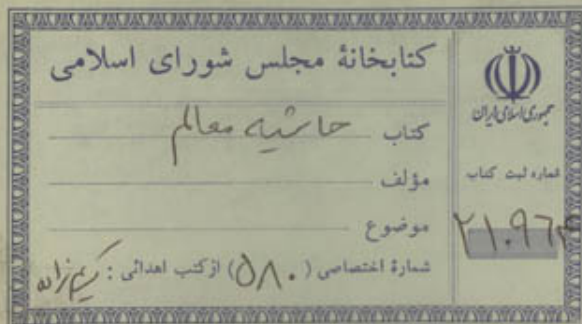 کتابخانهٔ مجلس شورای اسلامی
کتاب حاشیه معالم
مؤلف
موضوع
شمارهٔ اختصاصی (۵۸۰) از کتب اهدائی: کریم‌زاده
جمهوری اسلامی ایران
شماره ثبت کتاب